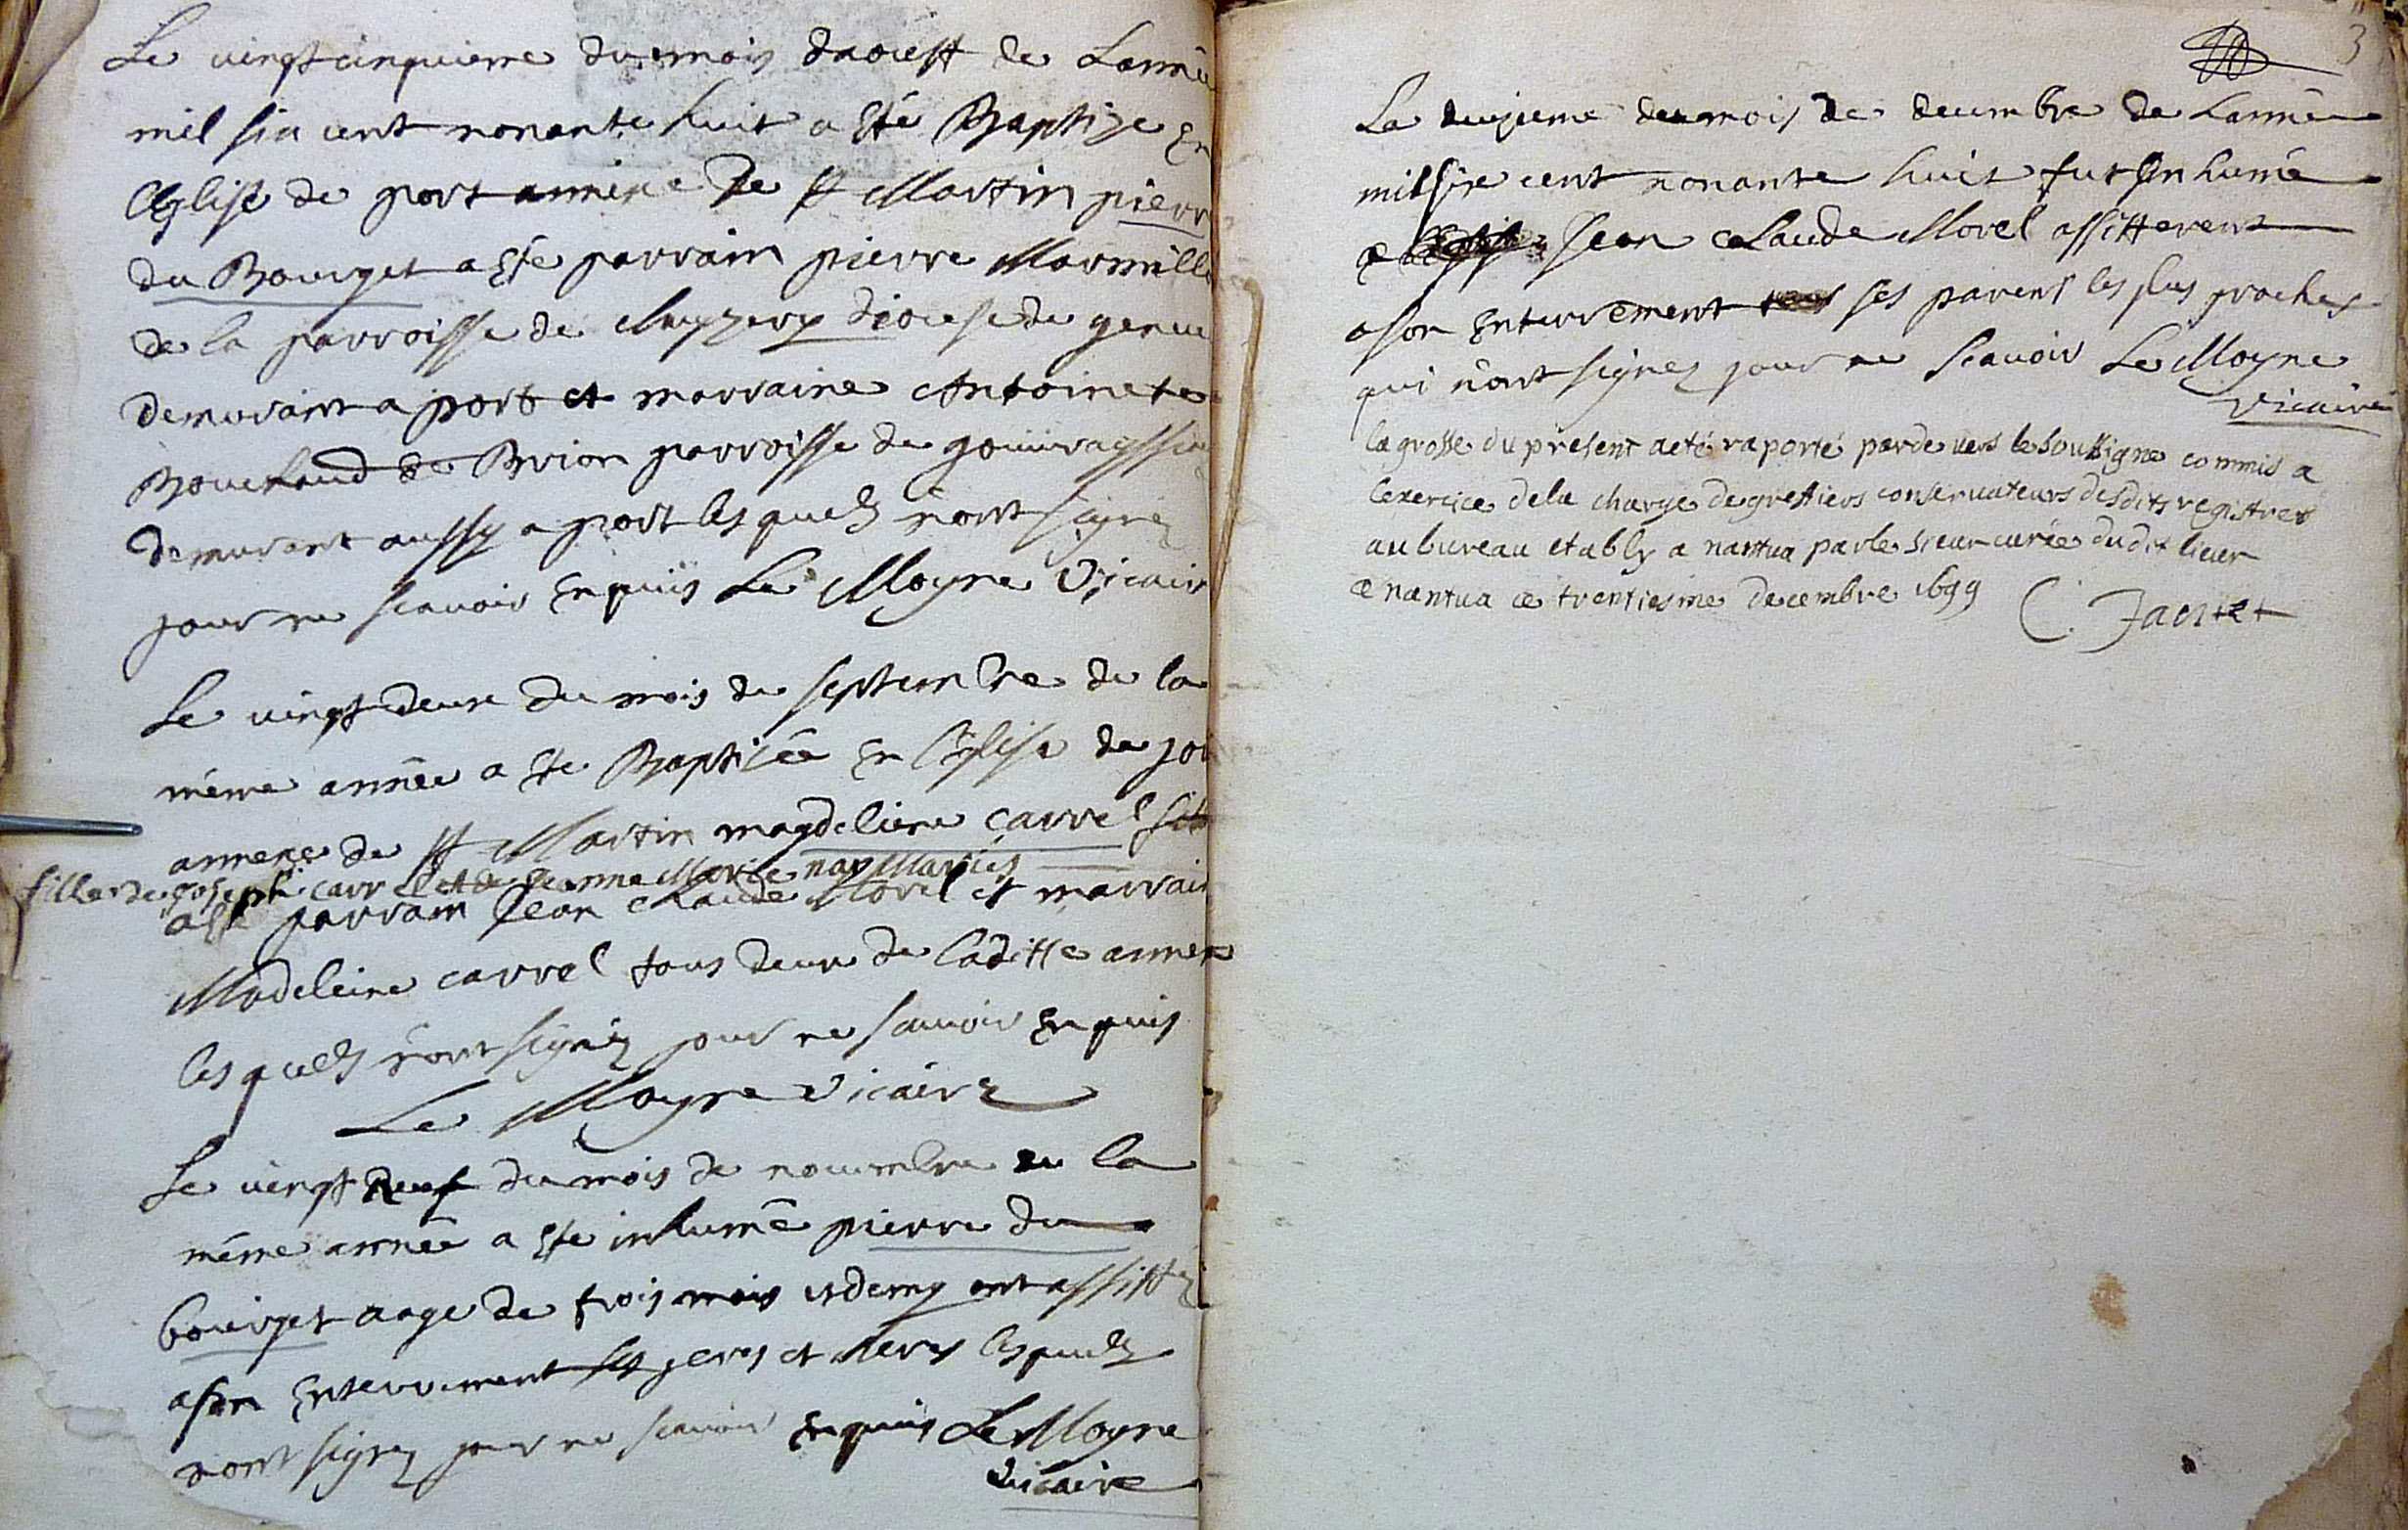 Le vingt cinquieme du mois daoust de Lanné
mil six cent nonante huit a esté Baptize En
l'Eglise de port annexe De St Martin pierr
du Bourget a esté parrain pierre Mermille
de la parroisse de diocese de geneu
demurant a port et marraine Antoinete
Bouchaud de Brion parroisse de
demurant aussy a port lesquels n'ont signéz
pour ne scauoir Enquis Le Moyne Vicaire
Le vingt deux du mois de septembre de la
méme année a esté Baptisée En l'Eglise de po
annexe de St Martin magdeliene carrel
fille de joseph carrel et de jeanne Morel
a esté parrain Jean claude Morel et marrain
Madeleine carrel tous deux de laditte annex
lesquels n'ont signéz pour ne sauoir Enquis
Le Moyne Vicaire
Le vingt neuf du mois de nouembre de la
méme année a esté inhumé pierre du
bourget aage de trois mois et demy ont assisté
a son Enterrement ses peres et meres lesquels
n'ont signéz pour ne scauoir Enquis Le Moyne
vicaire
3
Le deuxieme du mois de decembre de Lannée
mil six cent nonante huit fut Enhumé
Jean claude Morel assisterent
a son Enterrement ses parens les plus proches
qui n'ont signez pour ne scauoir Le Moyne
Vicaire
la grosse du present acte raporté parde vers le soussigne commis a
lexercice dela charge de greffiers conseruateurs desdits registres
au bureau etably a nantua par le sieur curée dudit lieux
a nantua ce trentiesme decembre 1699 C. Jantet